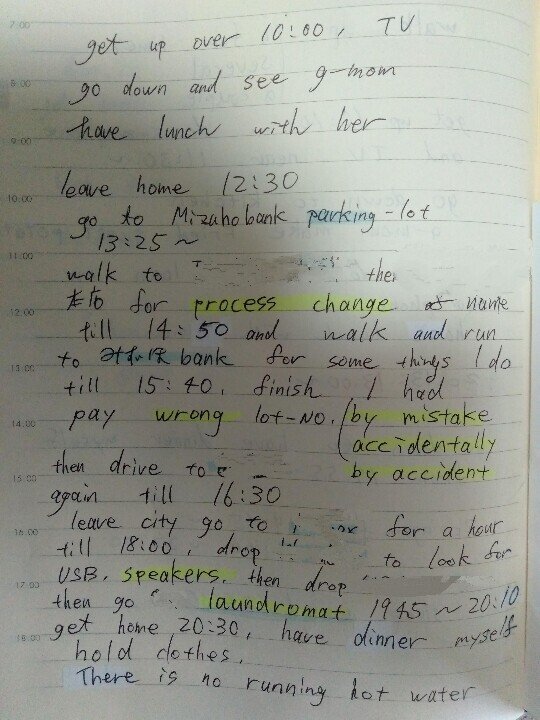 7:00
get up over 10:00, TV
8:00
go down and see g-mom
9:00
have lunch with her
10:00
leave home 12:30
go to Mizuhobank parking-lot
11:00
13:25 ~
walk to the
12:00
for process change of name
till 14:50 and walk and run
13:00
to みずほ bank for some things I do
till 15:40. finish I had
14:00
pay wrong lot-NO. by mistake
accidentally
by accident
then drive to
15:00
again till 16:30
leave city go to for a hour
16:00
till 18:00, drop to look for
USB. speakers. then drop
17:00
then go laundromat 1945 ~ 20:10
get home 20:30, have dinner myself
18:00
hold clothes.
There is no running hot water